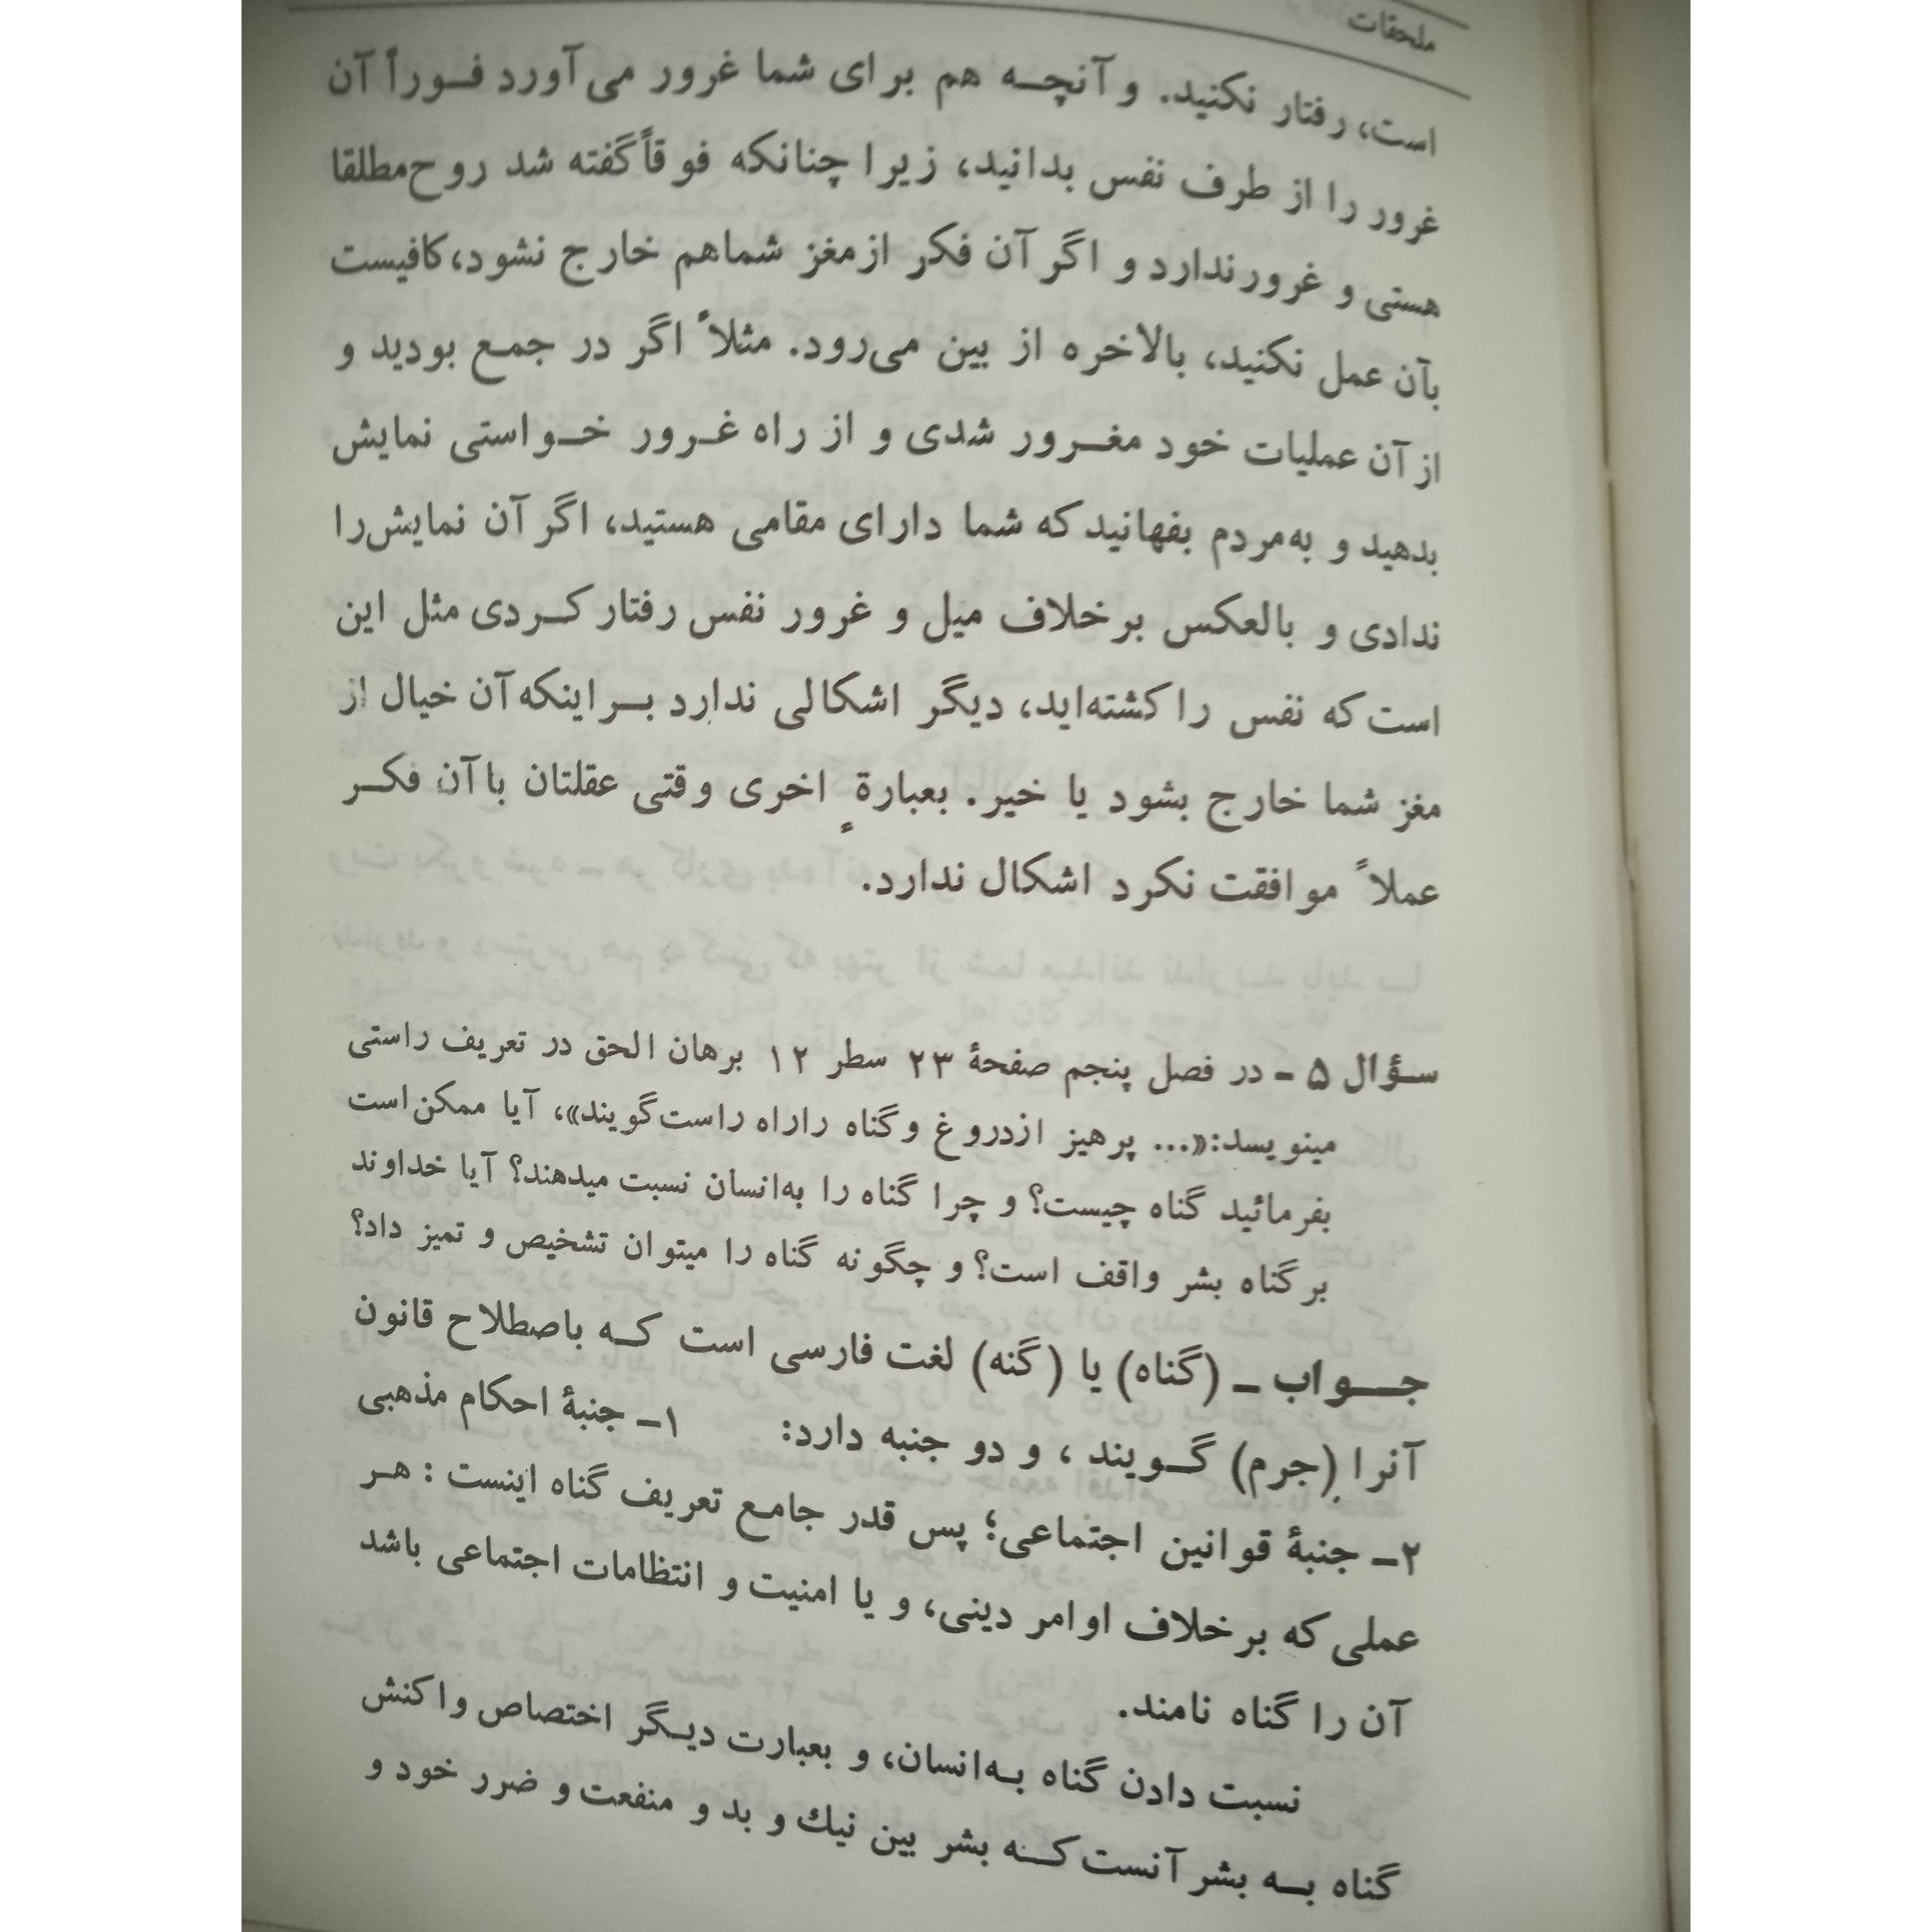 ملحقات
است، رفتار نکنید. و آنچه هم برای شما غرور می‌آورد فوراً آن
غرور را از طرف نفس بدانید، زیرا چنانکه فوقاً گفته شد روح مطلقا
هستی و غرور ندارد و اگر آن فکر از مغز شماهم خارج نشود، کافیست
بآن عمل نکنید، بالاخره از بین می‌رود. مثلاً اگر در جمع بودید و
از آن عملیات خود مغرور شدی و از راه غرور خواستی نمایش
بدهید و به‌مردم بفهانید که شما دارای مقامی هستید، اگر آن نمایش‌را
ندادی و بالعکس برخلاف میل و غرور نفس رفتار کردی مثل این
است که نفس را کشته‌اید، دیگر اشکالی ندارد براینکه آن خیال از
مغز شما خارج بشود یا خیر. بعبارةٍ اخری وقتی عقلتان با آن فکر
عملاً موافقت نکرد اشکال ندارد.
سؤال ۵ - در فصل پنجم صفحهٔ ۲۳ سطر ۱۲ برهان الحق در تعریف راستی
مینویسد:«... پرهیز ازدروغ و گناه راراه راست گویند»، آیا ممکن است
بفرمائید گناه چیست؟ و چرا گناه را به‌انسان نسبت میدهند؟ آیا خداوند
بر گناه بشر واقف است؟ و چگونه گناه را میتوان تشخیص و تمیز داد؟
جواب ـ (گناه) یا (گنه) لغت فارسی است که باصطلاح قانون
آنرا (جرم) گویند ، و دو جنبه دارد: ۱ـ جنبهٔ احکام مذهبی
۲ـ جنبهٔ قوانین اجتماعی؛ پس قدر جامع تعریف گناه اینست : هر
عملی که برخلاف اوامر دینی، و یا امنیت و انتظامات اجتماعی باشد
آن را گناه نامند.
نسبت دادن گناه به‌انسان، و بعبارت دیگر اختصاص واکنش
گناه به بشر آنست که بشر بین نیك و بد و منفعت و ضرر خود و